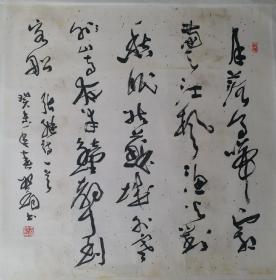 月落乌啼霜
满天江枫渔火对
愁眠姑苏城外寒
山寺夜半钟声到
客船
张继诗一首
癸未